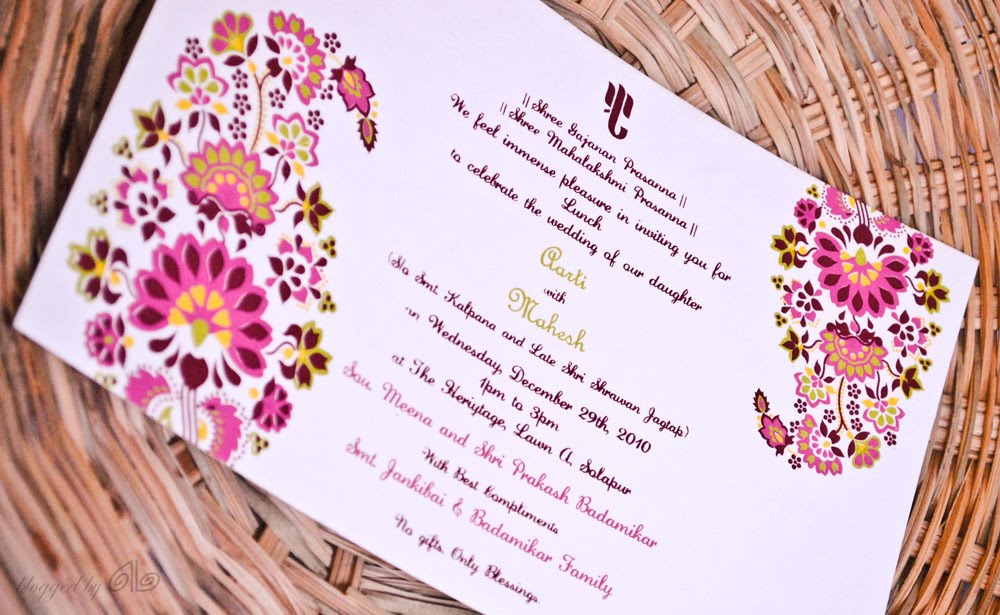 || Shree Gajanan Prasanna ||
|| Shree Mahalakshmi Prasanna ||
We feel immense pleasure in inviting you for
Lunch
to celebrate the wedding of our daughter
Aarti
with
Mahesh
(S/o Smt. Kalpana and Late Shri Shrawan Jagtap)
on Wednesday, December 29th, 2010
1pm to 3pm
at The Heriytage, Lawn A, Solapur
Sou. Meena and Shri Prakash Badamikar
With Best Compliments
Smt. Jankibai & Badamikar Family
No gifts. Only Blessings.
blogged by